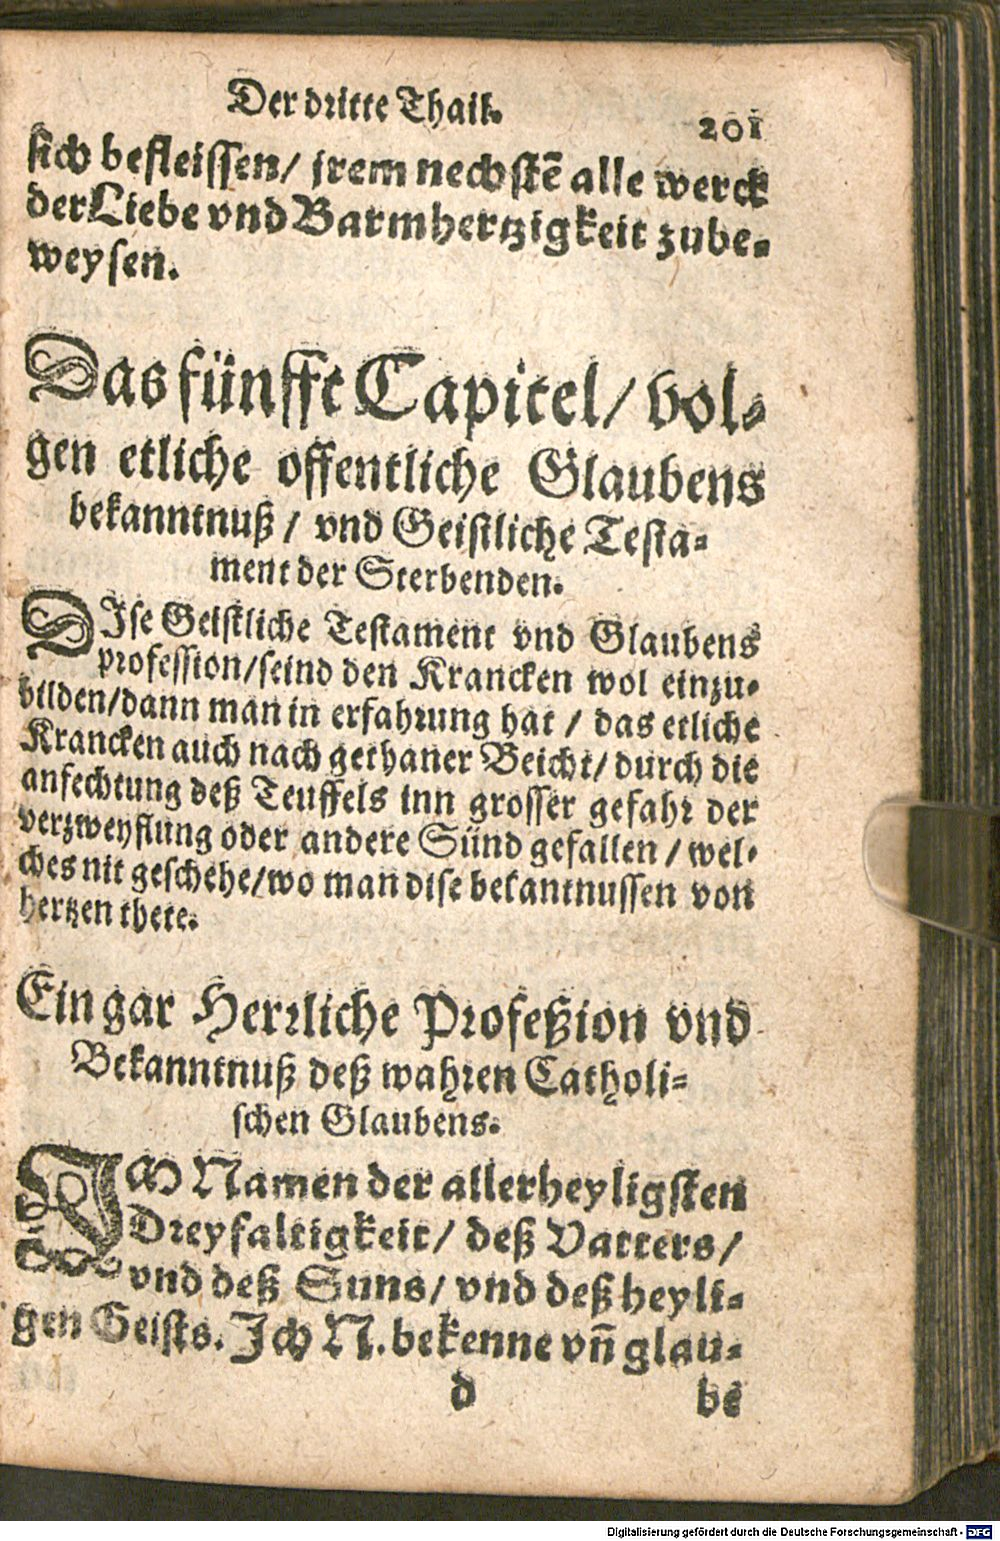 Der dritte Thail.
201
sich befleissen/ jrem nechstẽ alle werck
der Liebe vnd Barmhertzigkeit zube-
weysen.
Das fünfft Capitel/ vol-
gen etliche offentliche Glaubens
bekanntnuß / vnd Geistliche Testa-
ment der Sterbenden.
DIse Geistliche Testament vnd Glaubens
profession/seind den Krancken wol einzu-
bilden/dann man in erfahrung hat / das etliche
Krancken auch nach gethaner Beicht/ durch die
anfechtung deß Teuffels inn grosser gefahr der
verzweyflung oder andere Sünd gefallen / wel-
ches nit geschehe/wo man dise bekantnussen von
hertzen thete.
Ein gar Herrliche Profeßion vnd
Bekanntnuß deß wahren Catholi-
schen Glaubens.
IM Namen der allerheyligsten
Dreyfaltigkeit/ deß Vatters/
vnd deß Suns/ vnd deß heyli-
gen Geists. Ich N. bekenne vñ glau-
d
be
Digitalisierung gefördert durch die Deutsche Forschungsgemeinschaft - DFG